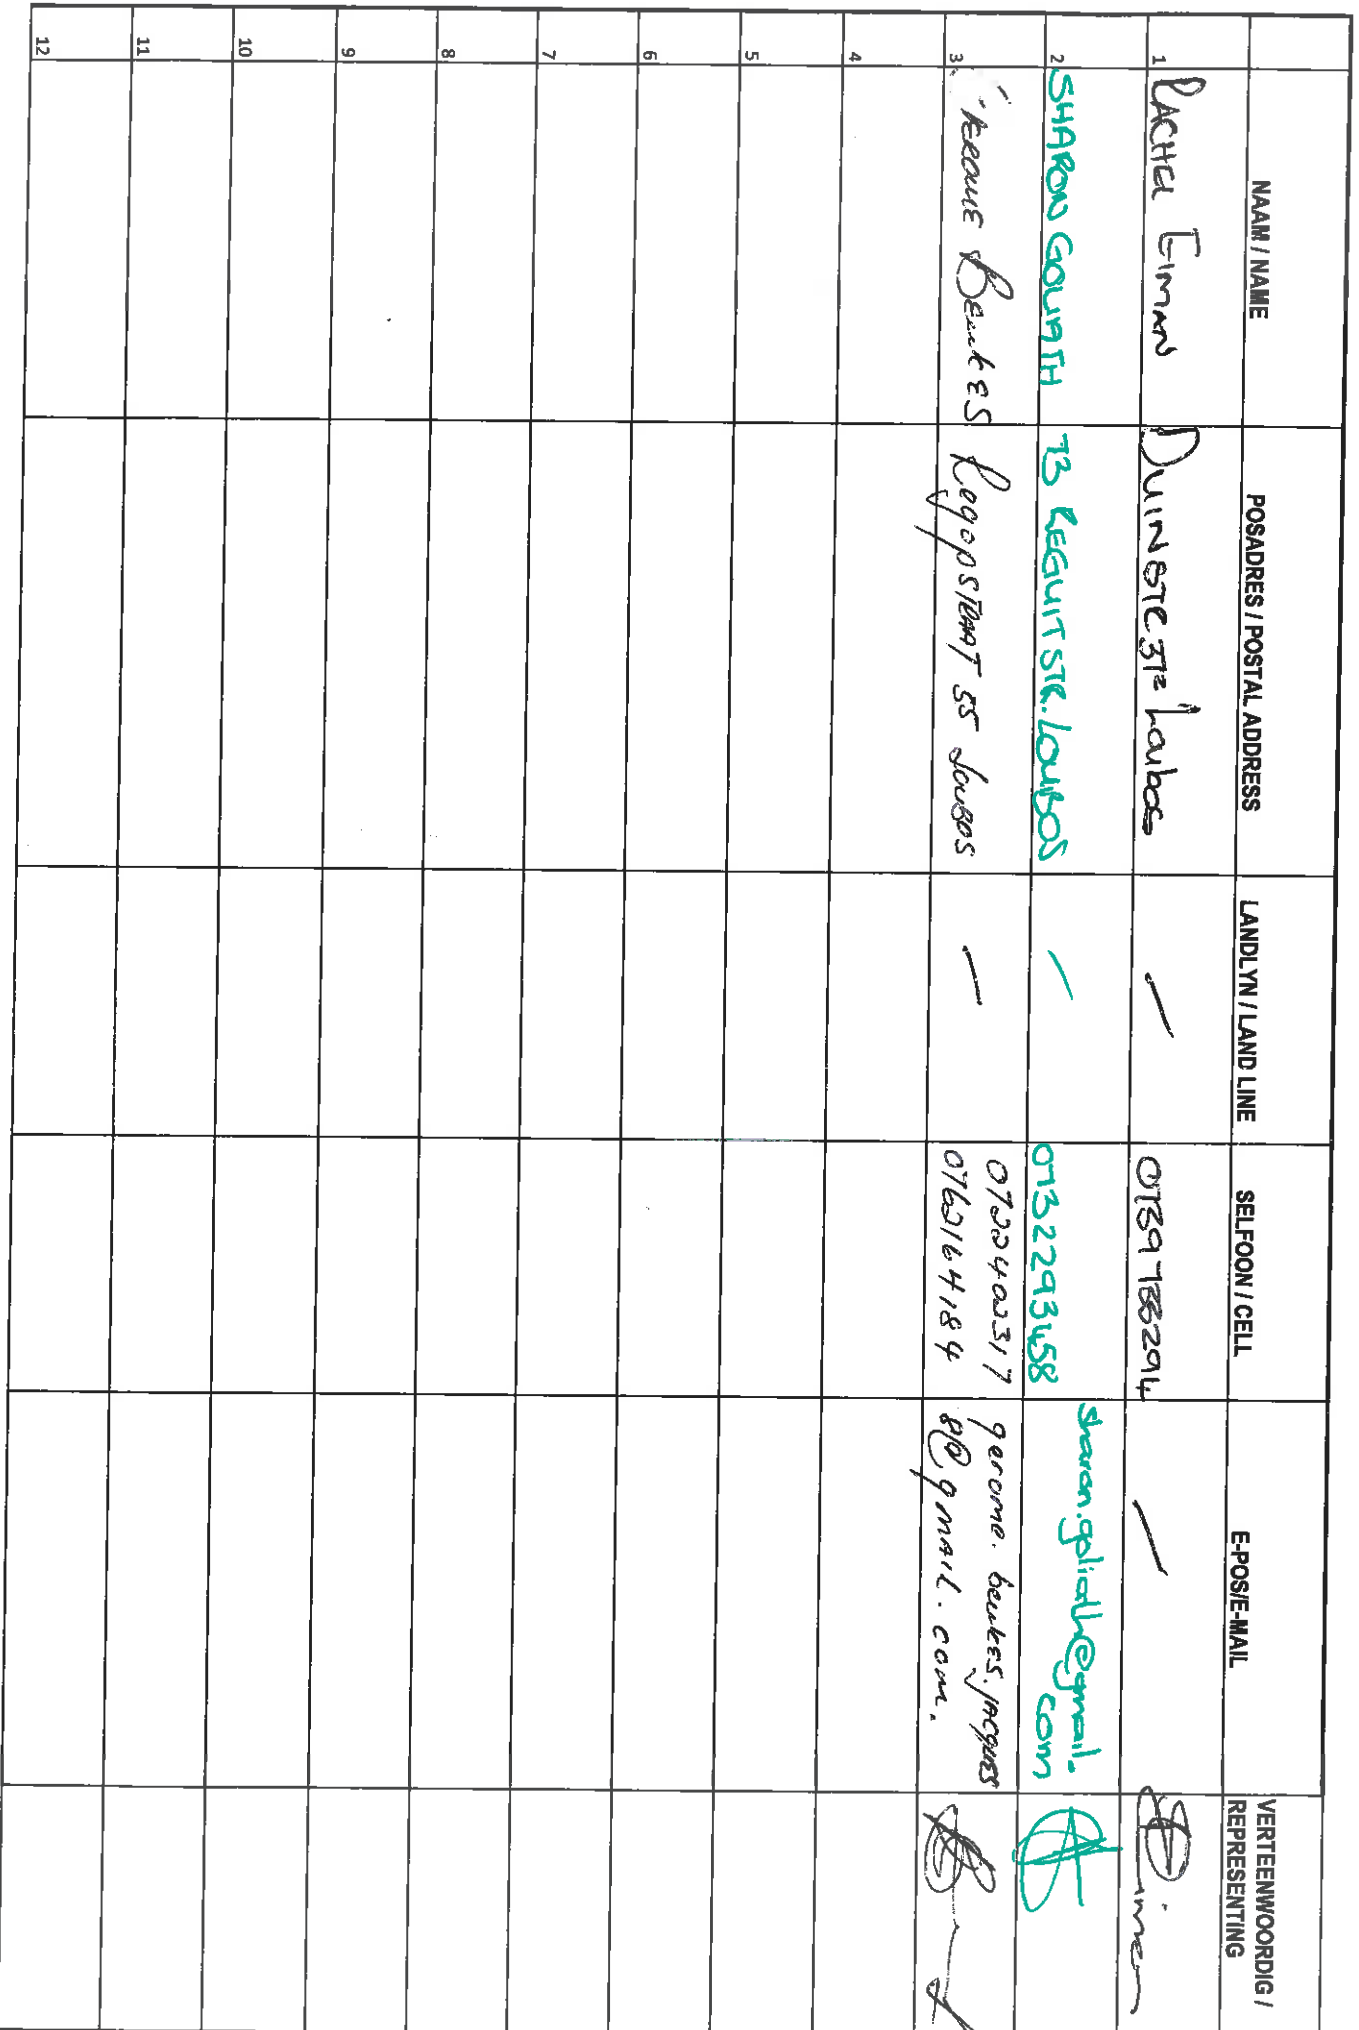 NAAM / NAME POSADRES / POSTAL ADDRESS LANDLYN / LAND LINE SELFOON / CELL E-POS/E-MAIL VERTEENWOORDIG / REPRESENTING
1 RACHEl EIMAN DUINSTR 372 Loubos — —
2 SHARON GOLIATH 73 REGUIT STR. LOUBOS — 0732293458 sharon.goliath@gmail.
com
3 BEUKES 55 LOUBOS — 0722402317 gerome.beukes.jacques
0762164184 8@gmail.com.
4
5
6
7
8
9
10
11
12